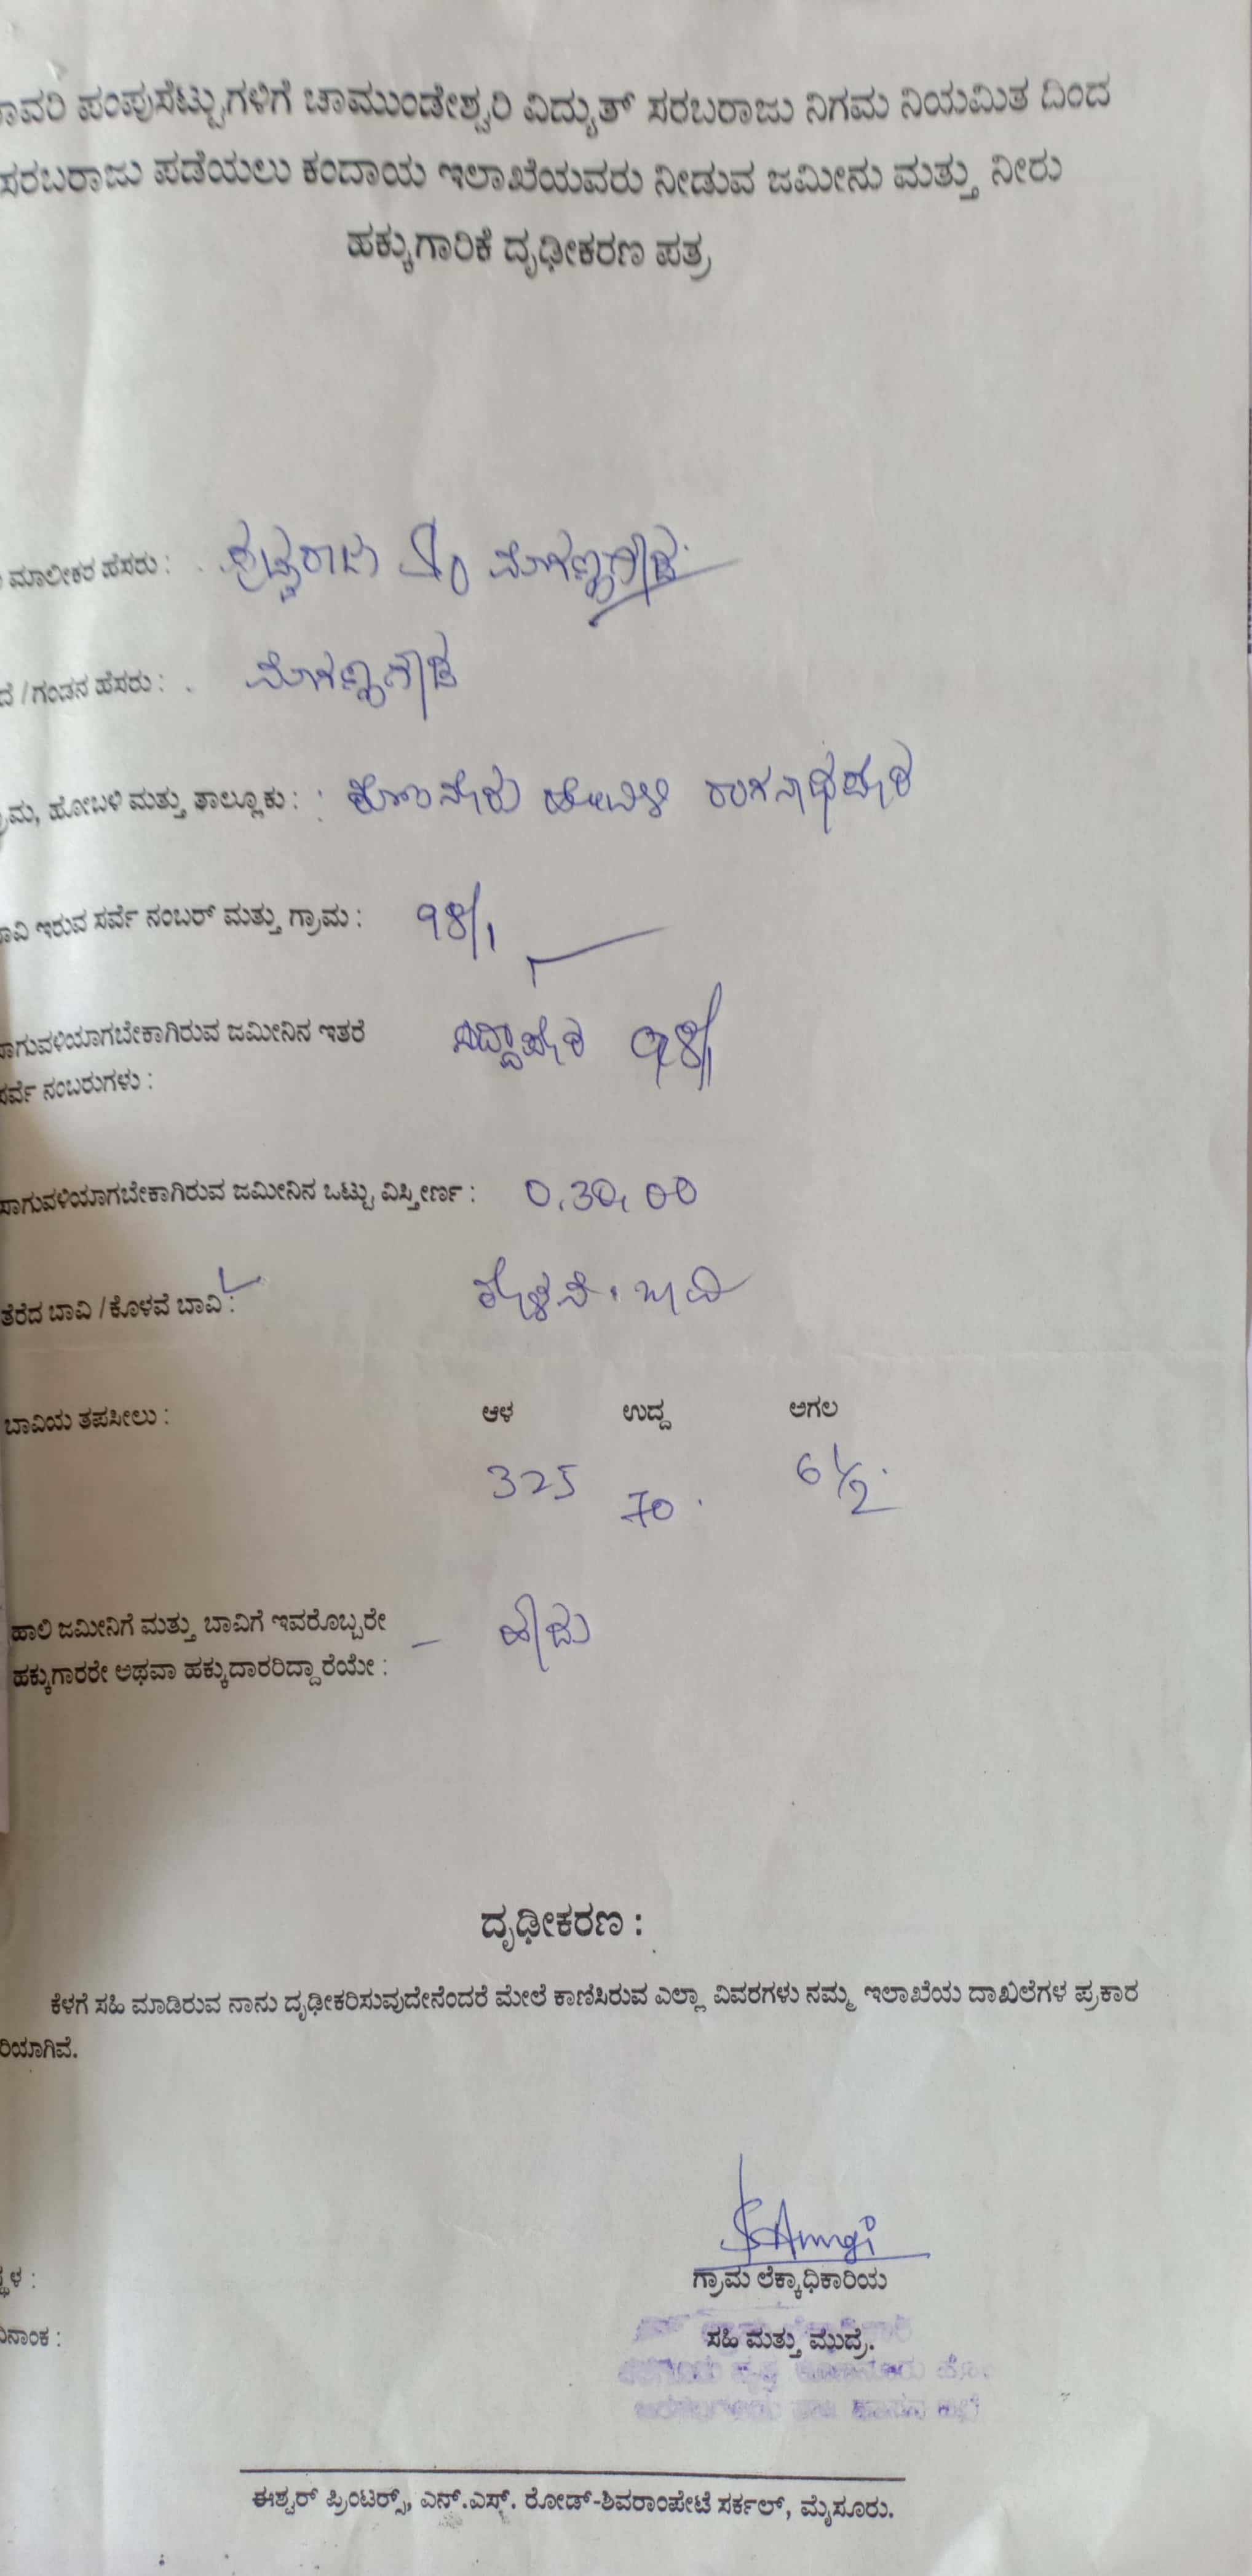 ಾವರಿ ಪಂಪುಸೆಟ್ಟುಗಳಿಗೆ ಚಾಮುಂಡೇಶ್ವರಿ ವಿದ್ಯುತ್ ಸರಬರಾಜು ನಿಗಮ ನಿಯಮಿತ ದಿಂದ
ಸರಬರಾಜು ಪಡೆಯಲು ಕಂದಾಯ ಇಲಾಖೆಯವರು ನೀಡುವ ಜಮೀನು ಮತ್ತು ನೀರು
ಹಕ್ಕುಗಾರಿಕೆ ದೃಢೀಕರಣ ಪತ್ರ
ಮಾಲೀಕರ ಹೆಸರು : S/o
ದೆ / ಗಂಡನ ಹೆಸರು :
ರಾಮ, ಹೋಬಳಿ ಮತ್ತು ತಾಲ್ಲೂಕು : ಹೋಬಳಿ
ಾವಿ ಇರುವ ಸರ್ವೆ ನಂಬರ್ ಮತ್ತು ಗ್ರಾಮ : 98/1
ಸಾಗುವಳಿಯಾಗಬೇಕಾಗಿರುವ ಜಮೀನಿನ ಇತರೆ 98/1
ಸರ್ವೆ ನಂಬರುಗಳು :
ಸಾಗುವಳಿಯಾಗಬೇಕಾಗಿರುವ ಜಮೀನಿನ ಒಟ್ಟು ವಿಸ್ತೀರ್ಣ : 0.30.00
ತೆರೆದ ಬಾವಿ / ಕೊಳವೆ ಬಾವಿ : ಕೊಳವೆ ಬಾವಿ
ಬಾವಿಯ ತಪಸೀಲು : ಆಳ ಉದ್ದ ಅಗಲ
325 70 6 1/2
ಹಾಲಿ ಜಮೀನಿಗೆ ಮತ್ತು ಬಾವಿಗೆ ಇವರೊಬ್ಬರೇ – ಹೌದು
ಹಕ್ಕುಗಾರರೇ ಅಥವಾ ಹಕ್ಕುದಾರರಿದ್ದಾರೆಯೇ :
ದೃಢೀಕರಣ :
ಕೆಳಗೆ ಸಹಿ ಮಾಡಿರುವ ನಾನು ದೃಢೀಕರಿಸುವುದೇನೆಂದರೆ ಮೇಲೆ ಕಾಣಿಸಿರುವ ಎಲ್ಲಾ ವಿವರಗಳು ನಮ್ಮ ಇಲಾಖೆಯ ದಾಖಲೆಗಳ ಪ್ರಕಾರ
ರಿಯಾಗಿವೆ.
ಗ್ರಾಮ ಲೆಕ್ಕಾಧಿಕಾರಿಯ
ಸ್ಥಳ :
ಸಹಿ ಮತ್ತು ಮುದ್ರೆ.
ದಿನಾಂಕ :
ಈಶ್ವರ್ ಪ್ರಿಂಟರ್ಸ್, ಎನ್.ಎಸ್. ರೋಡ್-ಶಿವರಾಂಪೇಟೆ ಸರ್ಕಲ್, ಮೈಸೂರು.